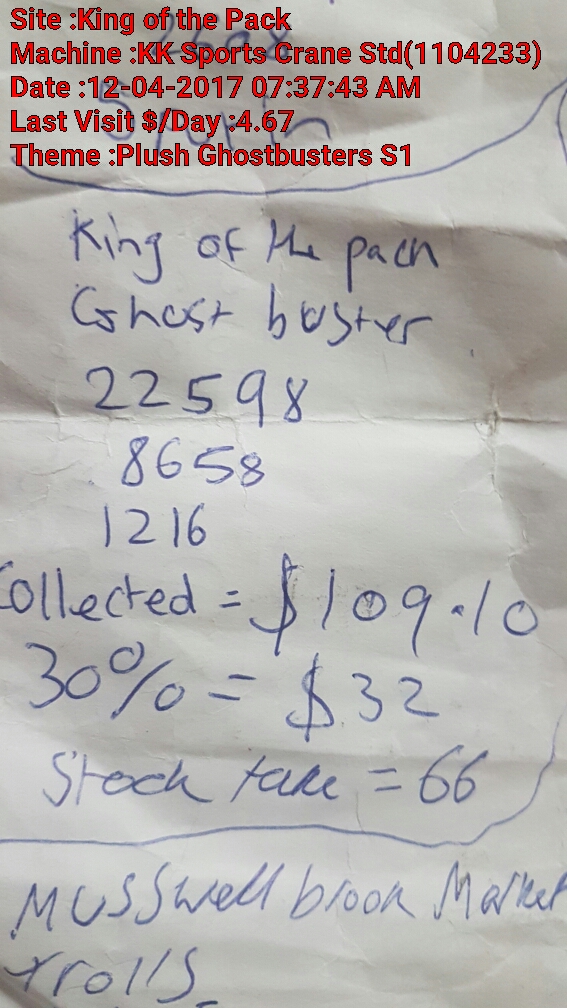 Site :King of the Pack
Machine :KK Sports Crane Std(1104233)
Date :12-04-2017 07:37:43 AM
Last Visit $/Day :4.67
Theme :Plush Ghostbusters S1
King of the pack
Ghost buster
22598
8658
1216
Collected = $109.10
30% = $32
Stock take = 66
MUSSwell brook Market
trolls